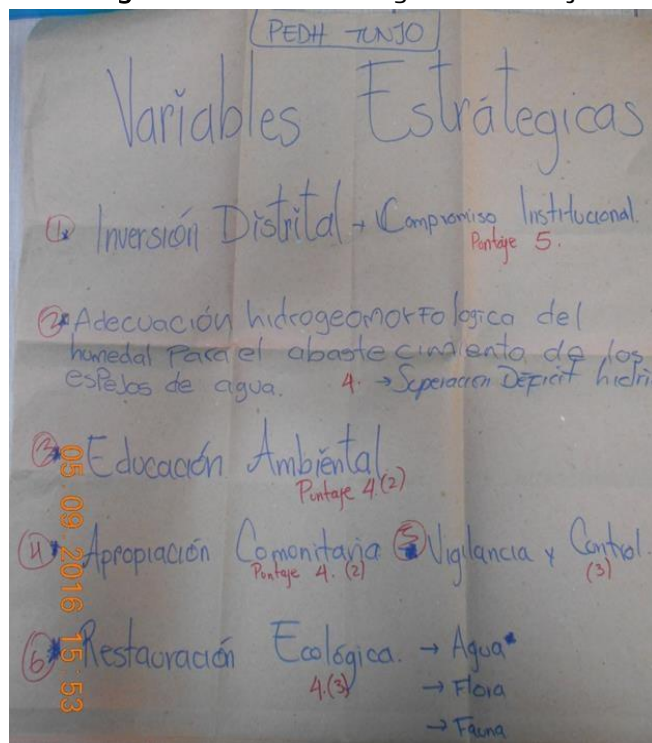 PEDH TUNJO
Variables Estrátegicas
1* Inversión Distrital → Compromiso Institucional.
Pontaje 5.
2* Adecuación hidrogeomorfologica del
humedal Para el abastecimiento de los
esPejos de agua. 4. → Superación Déficit hídri
3* Educación Ambiental
Puntaje 4.(2)
4* Apropiación Comonitaria 5* Vigilancia y Control.
Pontaje 4. (2) (3)
6* Restauración Ecológica. → Agua*
4.(3) → Flora
→ Fauna
05 09 2016 15 53